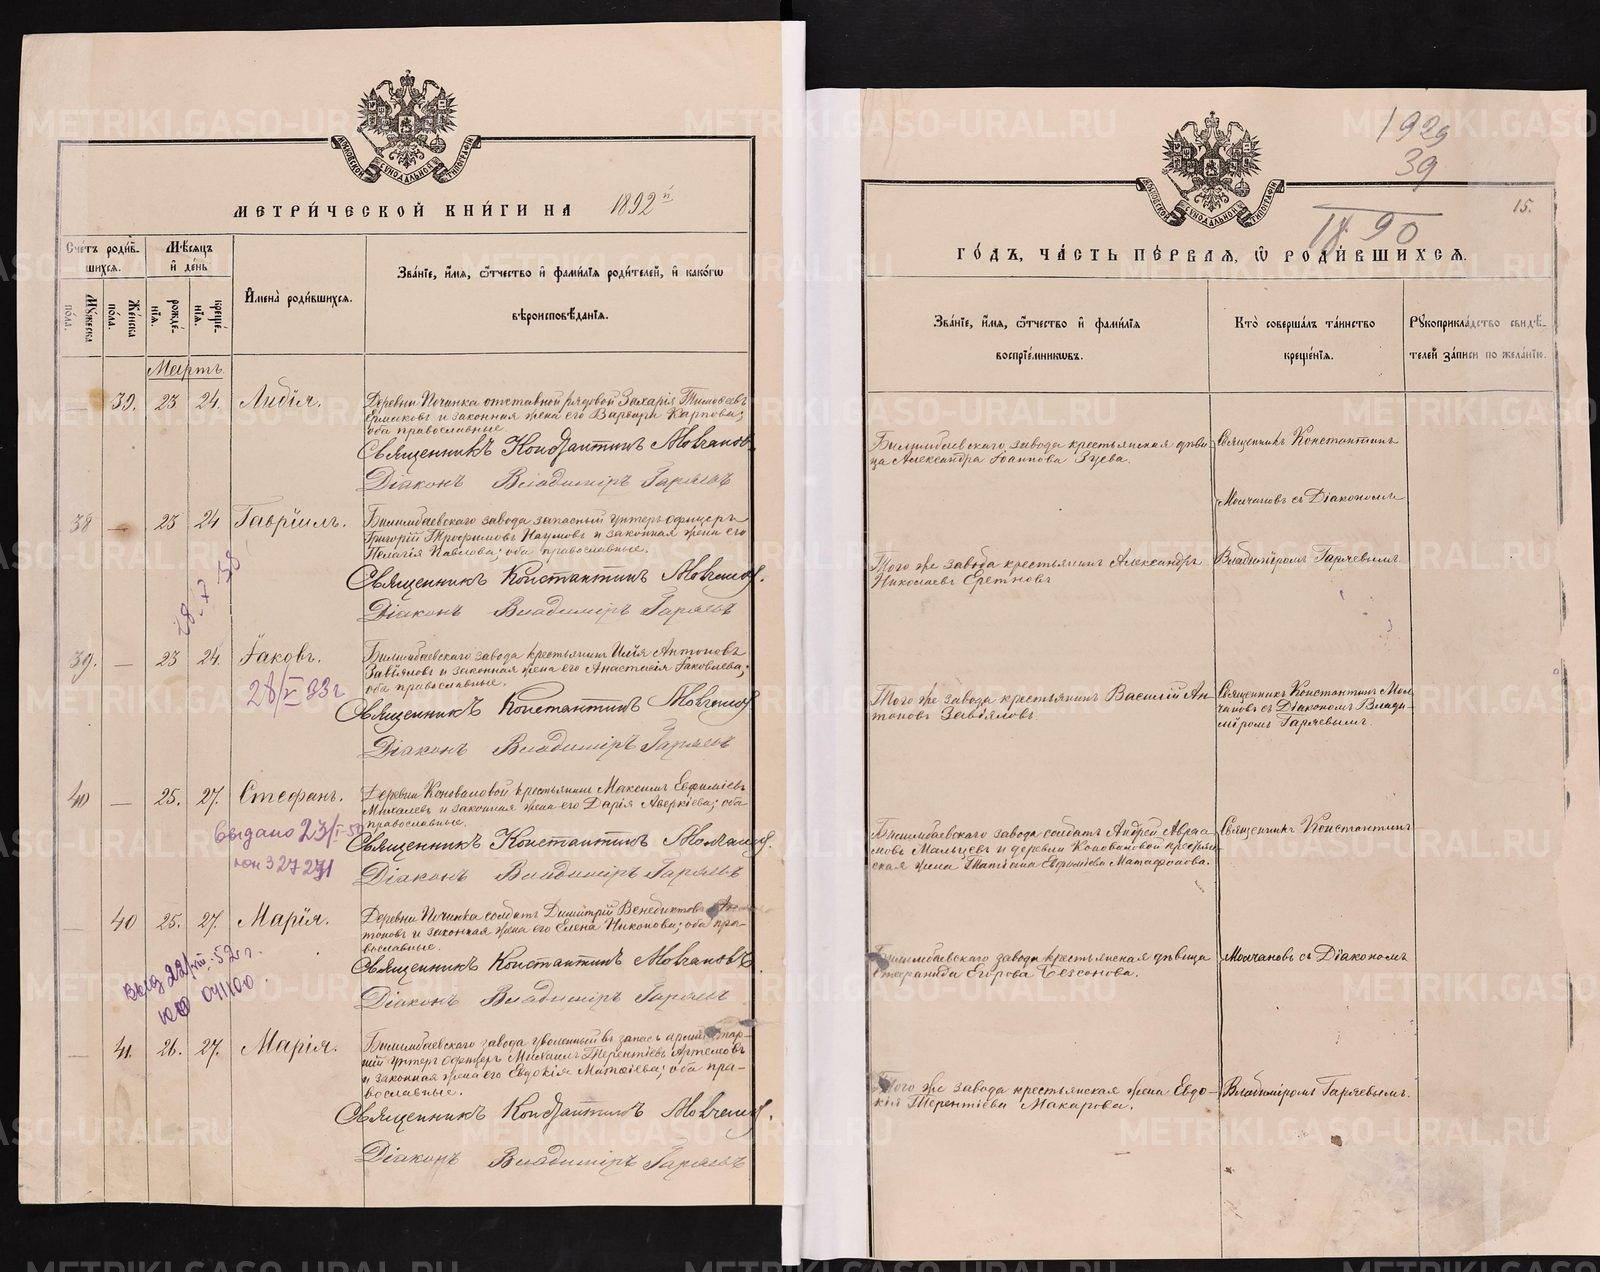 МОСКОВСКОЙ СѴНОДАЛЬНОЙ ТИПОГРАФІИ
МЕТРИ́ЧЕСКОЙ КНИ́ГИ НА 1892й
Сче́тъ роди́в-
шихся.
Мѣ́сяцъ
и҆ де́нь
Мꙋ́жеска
по́ла.
Же́нска
по́ла.
рожде́-
нїя.
креще́-
нїя.
И҆мена̀ роди́вшихся.
Зва́нїе, и҆́мя, ѻ҆́тчество и҆ фами́лїя роди́телей, и҆ како́гѡ
вѣроисповѣ́данїя.
Мартъ
39. 23 24. Лидія.
Деревни Починка отставной рядовой Захарія Тимоѳеевъ
Ермаковъ и законная жена его Варвара Карпова;
оба православные.
Священникъ Константинъ Молчановъ
Діаконъ Владиміръ Гаряевъ
38 — 23 24 Гавріилъ.
Билимбаевскаго завода запасный унтеръ офицеръ
Григорій Трофимовъ Наумовъ и законная жена его
Пелагія Павлова; оба православные.
Священникъ Константинъ Молчановъ.
Діаконъ Владиміръ Гаряевъ
28.7.38
39. — 23 24. Іаковъ.
Билимбаевскаго завода крестьянинъ Илія Антоновъ
Завьяловъ и законная жена его Анастасія Іаковлева;
оба православные.
28/V 33 г
Священникъ Константинъ Молчановъ
Діаконъ Владиміръ Гаряевъ
40 — 25. 27. Стефанъ.
Деревни Коноваловой крестьянинъ Максимъ Евфиміевъ
Михалевъ и законная жена его Дарія Аверкіева; оба
православные.
Выдано 23/I-52
327271
Священникъ Константинъ Молчановъ.
Діаконъ Владиміръ Гаряевъ
— 40 25. 27. Марія.
Деревни Починка солдатъ Димитрій Венедиктовъ Ан-
тоновъ и законная жена его Елена Никонова; оба пра-
вославные.
Священникъ Константинъ Молчановъ
Діаконъ Владиміръ Гаряевъ
Выд 22/VIII-52 г.
ЮО 041100
— 41. 26. 27. Марія.
Билимбаевскаго завода уволенный въ запасъ арміи стар-
шій унтеръ офицеръ Михаилъ Терентіевъ Артемовъ
и законная жена его Евдокія Матѳіева; оба пра-
вославные.
Священникъ Константинъ Молчановъ.
Діаконъ Владиміръ Гаряевъ
1929
39
1890
15.
МОСКОВСКОЙ СѴНОДАЛЬНОЙ ТИПОГРАФІИ
ГО́ДЪ, ЧА́СТЬ ПЕ́РВАЯ, Ѽ РОДИ́ВШИХСЯ.
Зва́нїе, и҆́мя, ѻ҆́тчество и҆ фами́лїя
воспрїе́мникѡвъ.
Кто̀ соверша́лъ та́инство
креще́нїя.
Рꙋкоприкла́дство свидѣ́-
телей за́писи по жела́нїю.
Билимбаевскаго завода крестьянская дѣви-
ца Александра Іоаннова Зуева.
Священникъ Константинъ
Молчановъ съ Діакономъ
Того же завода крестьянинъ Александръ
Николаевъ Еретновъ
Владиміромъ Гаряевымъ.
Того же завода крестьянинъ Василій Ан-
тоновъ Завьяловъ.
Священникъ Константинъ Мол-
чановъ съ Діакономъ Влади-
міромъ Гаряевымъ.
Билимбаевскаго завода солдатъ Андрей Авраа-
мовъ Мальцевъ и деревни Коноваловой крестьян-
ская жена Татіана Евфиміева Матафонова.
Священникъ Константинъ
Билимбаевскаго завода крестьянская дѣвица
Стефанида Егорова Безсонова.
Молчановъ съ Діакономъ
Того же завода крестьянская жена Евдо-
кія Терентіева Макарова.
Владиміромъ Гаряевымъ.
METRIKI.GASO-URAL.RU